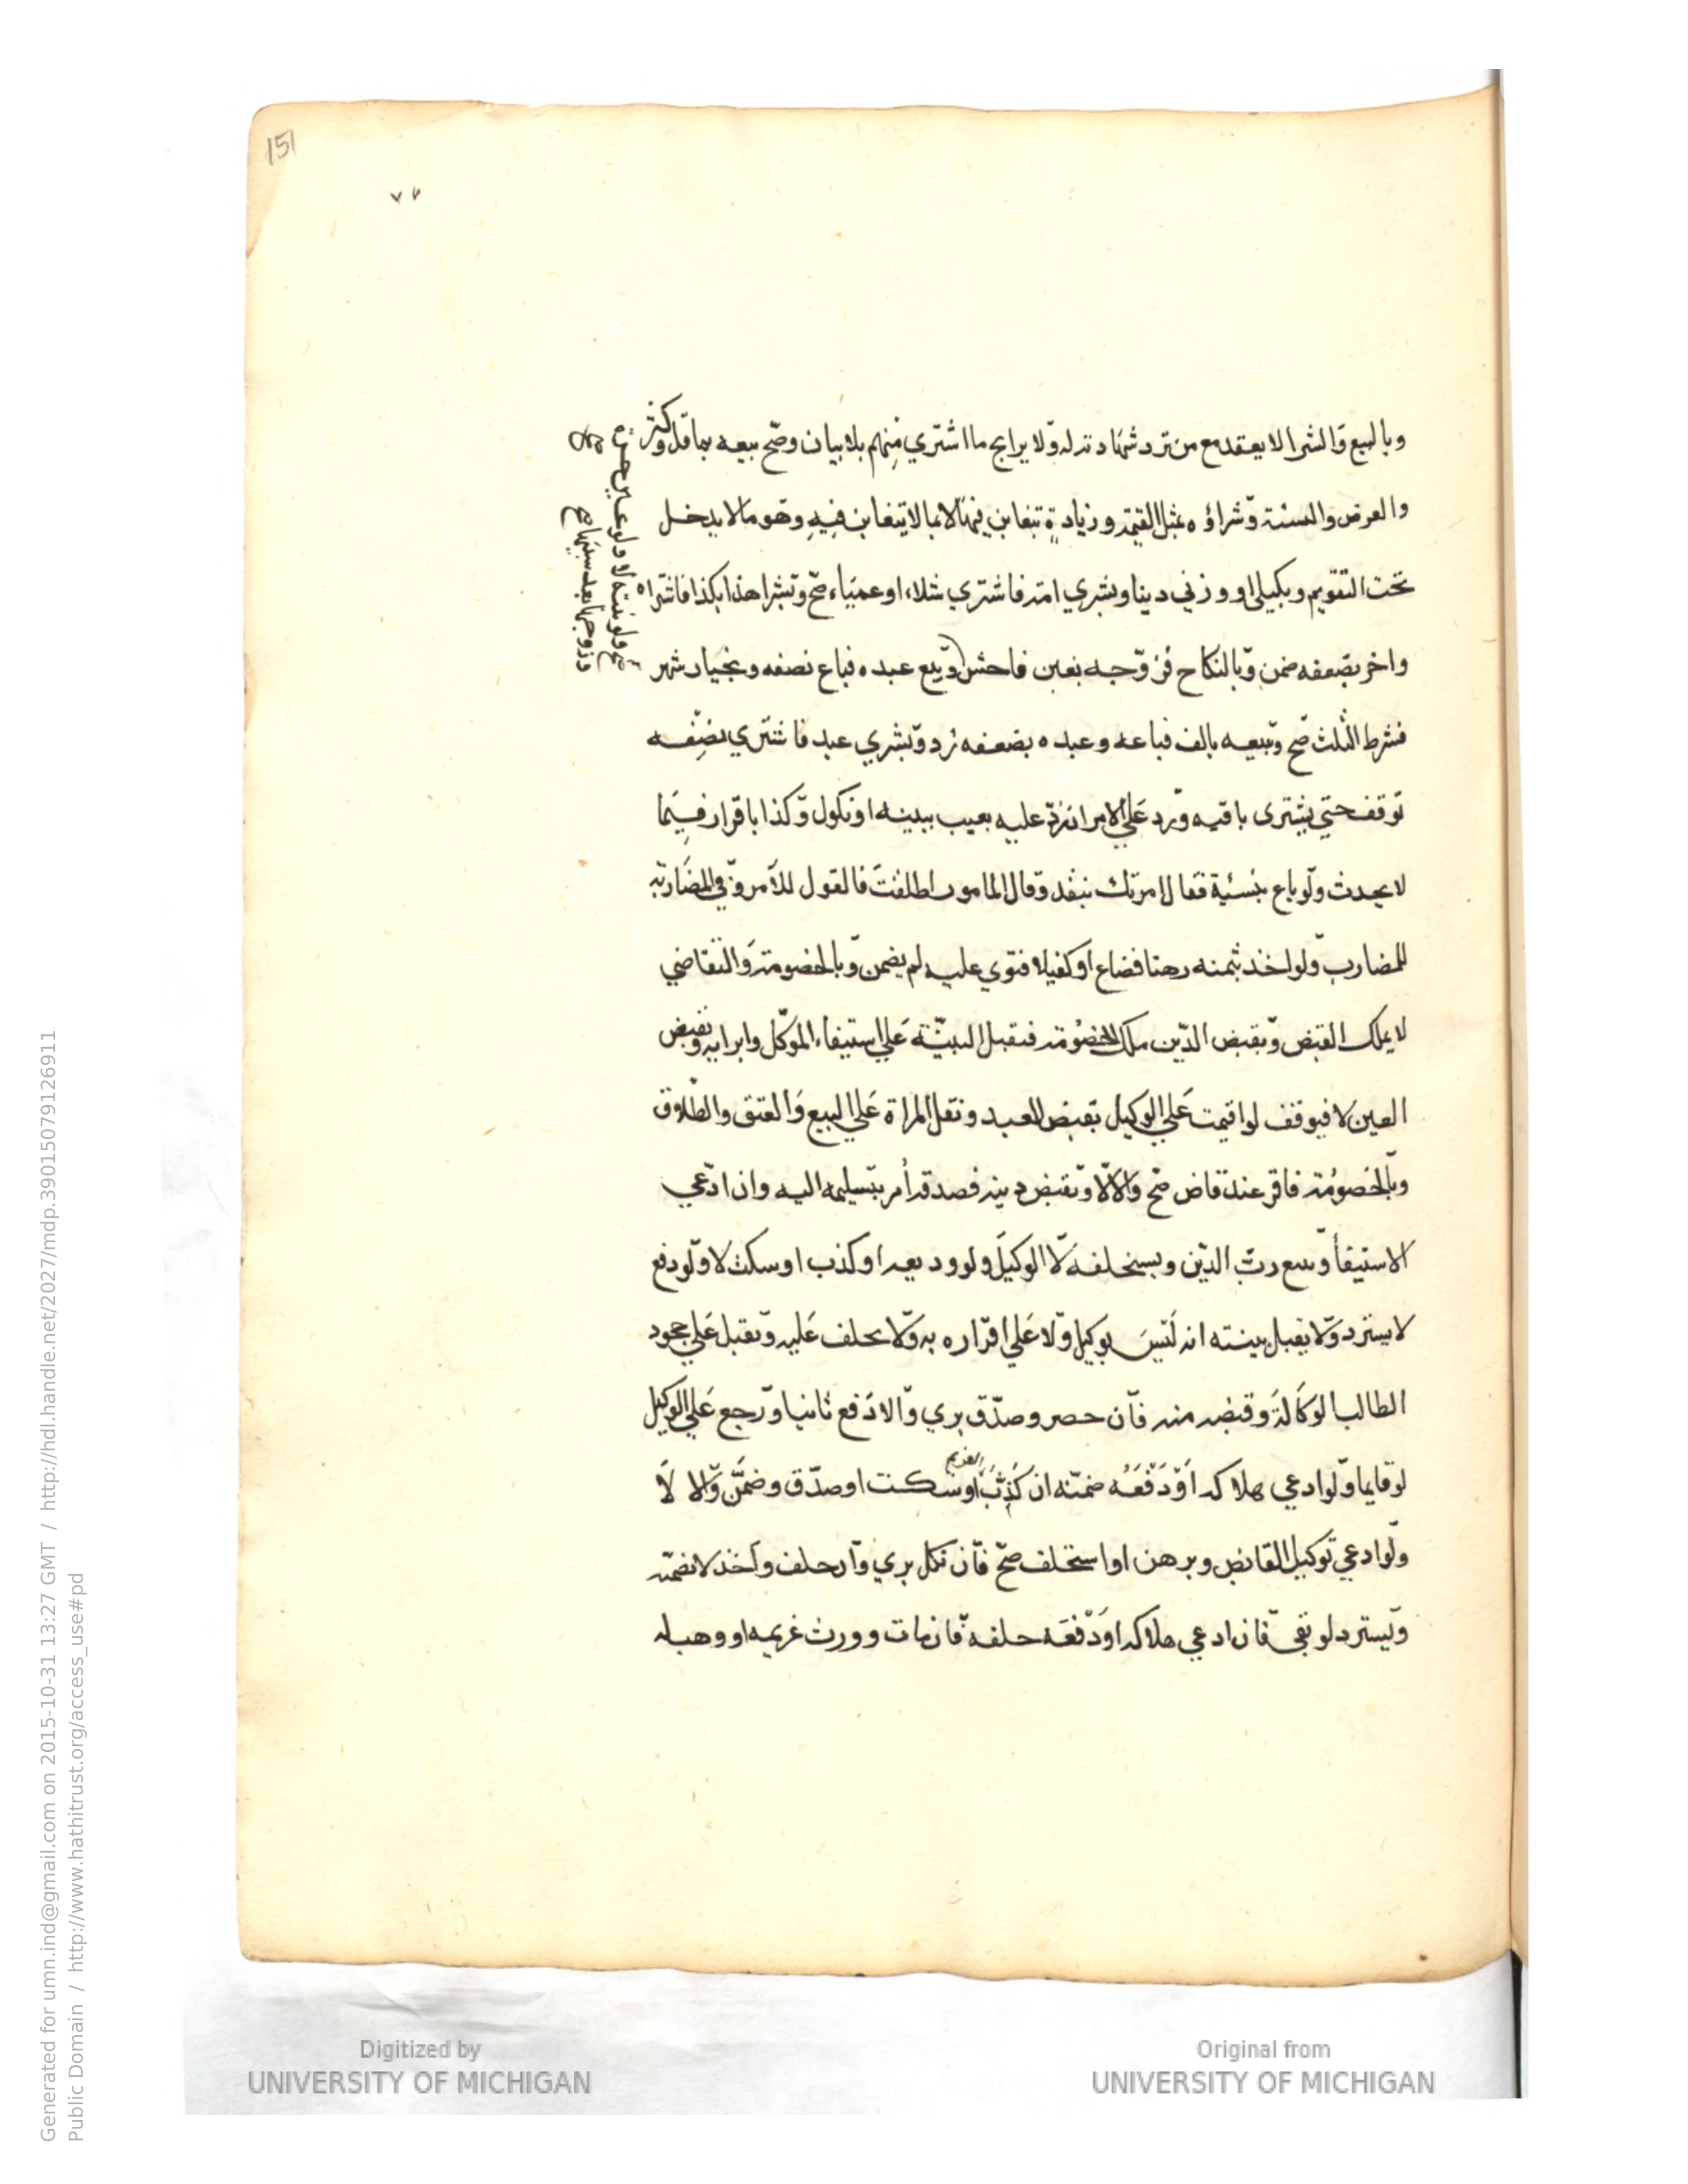 151
٧٧
وبالبيع والشرا لا يعقد مع من ترد شهادته له ولا يرابح ما اشتري منهم بلا بيان وصح بيعه بما قل وكثر
والعرض والنسئة وشراؤه بمثل القيمة وزيادة تتغابن فيها لا بما لا يتغابن فيه وهو ما لا يدخل
تحت التقويم وبكيلي او وزني دينا وبشري امة فاشتري شلاء او عمياء صح وبشرا هذا بكذا فاشتراه
واخر بضعفه ضمن وبالنكاح فزوجه بغبن فاحش او بيع عبده فباع نصفه وبخيار شهر
فشرط الثلث صح وببيعه بالف فباعه وعبده بضعفه رد وبشري عبد فاشتري نصفه
توقف حتي يشترى باقيه ورد علي الامر ان رد عليه بعيب ببينه او نكول وكذا باقرار فيما
لا يحدث ولو باع بنسئية فقال امرتك بنقد وقال المامور اطلقت فالقول للآمر وفي المضاربة
للمضارب ولو اخذ بثمنه رهنا فضاع او كفيلا فتوي عليه لم يضمن وبالخصومة والتقاضي
لا يملك القبض وبقبض الدين ملك الخصومة فتقبل البينة علي استيفاء الموكل وابرايه وبقبض
العين لا فيوقف لو اقيمت علي الوكيل بقبض العبد ونقل المراة علي البيع والعتق والطلاق
وبالخصومة فاقر عند قاض صح والا لا وبقبض دينه فصدقه أمر بتسليمه اليه وان ادعي
الاستيفأ وتبع رب الدين ويستحلفه لا الوكيل ولو وديعه او كذب او سكت لا ولو دفع
لا يسترد ولا يقبل بينته انه ليس بوكيل ولا علي اقراره به ولا يحلف عليه وتقبل علي جحود
الطالب الوكالة وقبضه منه فان حصر وصدق بري والا دفع ثانيا ورجع علي الوكيل
لو قايما ولو ادعي هلاكه او دفعه ضمنه ان كذب الغريم او سكت او صدق وضمن والا لا
ولو ادعي توكيل القابض وبرهن او استحلف صح فان نكل بري وان حلف واخذ لا نضمنه
ويسترد لو بقي فان ادعي هلاكه او دفعه حلفه فان مات وورث غريمه او وهبه له
Generated for umn.ind@gmail.com on 2015-10-31 13:27 GMT / http://hdl.handle.net/2027/mdp.39015079126911
Public Domain / http://www.hathitrust.org/access_use#pd
Digitized by
UNIVERSITY OF MICHIGAN
Original from
UNIVERSITY OF MICHIGAN